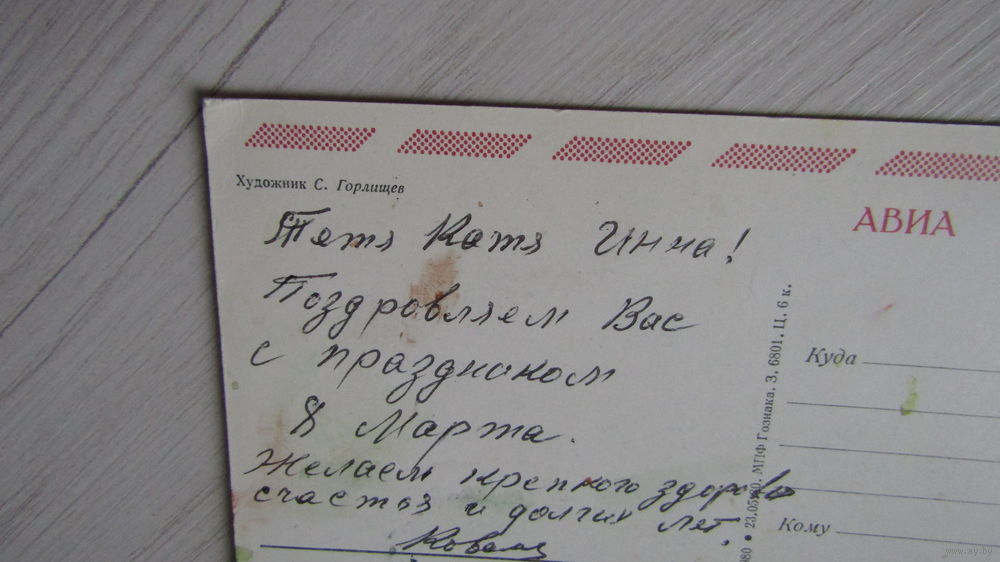 Художник С. Горлищев
АВИА
Тетя Катя Инна!
Поздровляем Вас
с праздником
8 Марта.
Желаем крепкого здоровь
счастья и долгих лет.
Куда
Кому
980 • 23.05 МПФ Гознака. З. 6801. Ц. 6 к.
www.ay.by